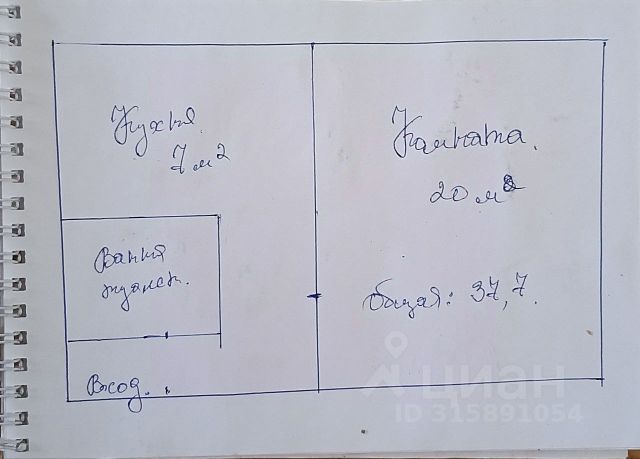 Кухня.
7 м2
Комната.
20 м2
Вання
туалет.
общая: 37,7.
Вход.
циан
ID 315891054